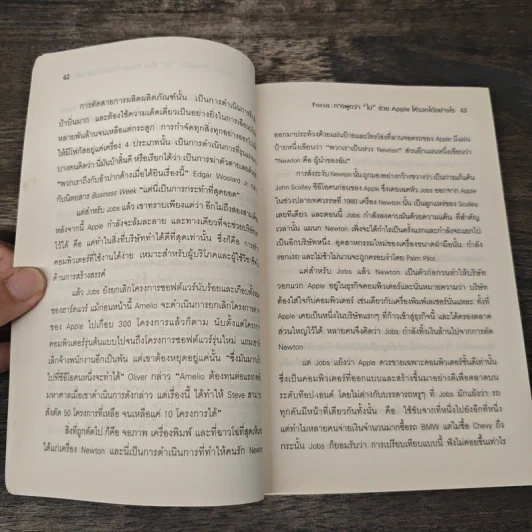 42
การตัดสายการผลิตผลิตภัณฑ์นั้น เป็นการดำเนินการที่
บ้าบิ่นมาก และต้องใช้ความเด็ดเดี่ยวเป็นอย่างยิ่งในการ
หลายพันล้านจนเหลือแค่กระดูก การกำจัดทุกสิ่งทุกอย่างออกไป
ให้มีโฟกัสอยู่แค่เครื่อง 4 ประเภทนั้น เป็นการดำเนินการที่รุนแรง
บางคนคิดว่า นี่มันบ้าสิ้นดี หรือเรียกได้ว่า เป็นการฆ่าตัวตายเลย
"พวกเราถึงกับอ้าปากค้างเมื่อได้ยินเรื่องนี้" Edgar Woolard Jr.
กับนิตยสาร Business Week "แต่นี่เป็นการกระทำที่สุดยอด"
แต่สำหรับ Jobs แล้ว เขาทราบเพียงแต่ว่า อีกไม่ถึงสองสามเดือน
หลังจากนี้ Apple กำลังจะล้มละลาย และทางเดียวที่จะช่วยบริษัท
ไว้ได้ คือ แค่ทำในสิ่งที่บริษัททำได้ดีที่สุดเท่านั้น ซึ่งก็คือ การสร้าง
คอมพิวเตอร์ที่ใช้งานได้ง่าย เหมาะสำหรับผู้บริโภคและผู้ใช้วิชาชีพ
ด้านการสร้างสรรค์
แล้ว Jobs ยังยกเลิกโครงการซอฟต์แวร์นับร้อยและเกือบทั้งหมด
ของฮาร์ดแวร์ แม้ก่อนหน้านี้ Amelio จะดำเนินการยกเลิกโครงการต่างๆ
ของ Apple ไปเกือบ 300 โครงการแล้วก็ตาม นับตั้งแต่โครงการ
คอมพิวเตอร์รุ่นต้นแบบไปจนถึงโครงการซอฟต์แวร์รุ่นใหม่ แถมเขายัง
เลิกจ้างพนักงานอีกเป็นพัน แต่เขาต้องหยุดอยู่แค่นั้น "ซึ่งมันมากเกิน
ไปที่ซีอีโอคนหนึ่งจะทำได้" Oliver กล่าว "Amelio ต้องทนต่อแรงกดดัน
มหาศาลเมื่อเขาดำเนินการดังกล่าว แต่เรื่องนี้ ได้ทำให้ Steve สามารถ
สั่งตัด 50 โครงการที่เหลือ จนเหลือแค่ 10 โครงการได้"
สิ่งที่ถูกตัดไป ก็คือ จอภาพ เครื่องพิมพ์ และที่ฉาวโฉ่ที่สุดเห็นจะ
ได้แก่เครื่อง Newton และนี่เป็นการดำเนินการที่ทำให้คนรัก Newton
Focus : การพูดว่า "ไม่" ช่วย Apple ให้รอดได้อย่างไร 43
ออกมาประท้วงด้วยแผ่นป้ายและโทรโข่งที่ลานจอดรถของ Apple มีแผ่น
ป้ายหนึ่งเขียนว่า "พวกเราเป็นห่วง Newton" ส่วนอีกแผ่นหนึ่งเขียนว่า
"Newton คือ ผู้นำของฉัน"
การสั่งระงับ Newton นั้นถูกมองอย่างกว้างขวางว่า เป็นการแก้แค้น
John Sculley ซีอีโอคนก่อนของ Apple ซึ่งเคยเฉดหัว Jobs ออกจาก Apple
ในช่วงปลายทศวรรษที่ 1980 เครื่อง Newton นั้น เป็นลูกแหง่ของ Sculley
เลยทีเดียว และตอนนี้ Jobs กำลังสงคาบมันด้วยความแค้น ที่สำคัญ
เวลานั้น แผนก Newton เพิ่งจะได้กำไรเป็นครั้งแรกและกำลังจะแยกไป
เป็นอีกบริษัทหนึ่ง อุตสาหกรรมใหม่ของเครื่องขนาดฝ่ามือนั้น กำลัง
งอกเงย และไม่ช้าไม่นานจะถูกครอบงำโดย Palm Pilot
แต่สำหรับ Jobs แล้ว Newton เป็นตัวก่อกวนทำให้บริษัท
วอกแวก Apple อยู่ในธุรกิจคอมพิวเตอร์และนั่นหมายความว่า บริษัท
ต้องใส่ใจกับคอมพิวเตอร์ เช่นเดียวกับเครื่องพิมพ์เลเซอร์นั่นแหละ ทั้งที่
Apple เคยเป็นหนึ่งในบริษัทแรกๆ ที่ก้าวเข้าสู่ธุรกิจนี้ และได้ครองตลาด
ส่วนใหญ่ไว้ได้ หลายคนจึงคิดว่า Jobs กำลังทิ้งเงินล้านไปจากการตัด
Newton
แต่ Jobs แย้งว่า Apple ควรขายเฉพาะคอมพิวเตอร์ชั้นดีเท่านั้น
ซึ่งเป็นคอมพิวเตอร์ที่ออกแบบและสร้างขึ้นมาอย่างดีเพื่อตลาดบน
ระดับท็อป-เอนด์ โดยไม่ต่างกับบรรดารถหรูๆ ที่ Jobs มักแย้งว่า รถ
ทุกคันมีหน้าที่เดียวกันทั้งนั้น คือ ใช้ขับจากที่หนึ่งไปยังอีกที่หนึ่ง
แต่ทำไมหลายคนจ่ายเงินจำนวนมากซื้อรถ BMW แต่ไม่ซื้อ Chevy ถึง
กระนั้น Jobs ก็ยอมรับว่า การเปรียบเทียบแบบนี้ ฟังไม่ค่อยขึ้นเท่าไร